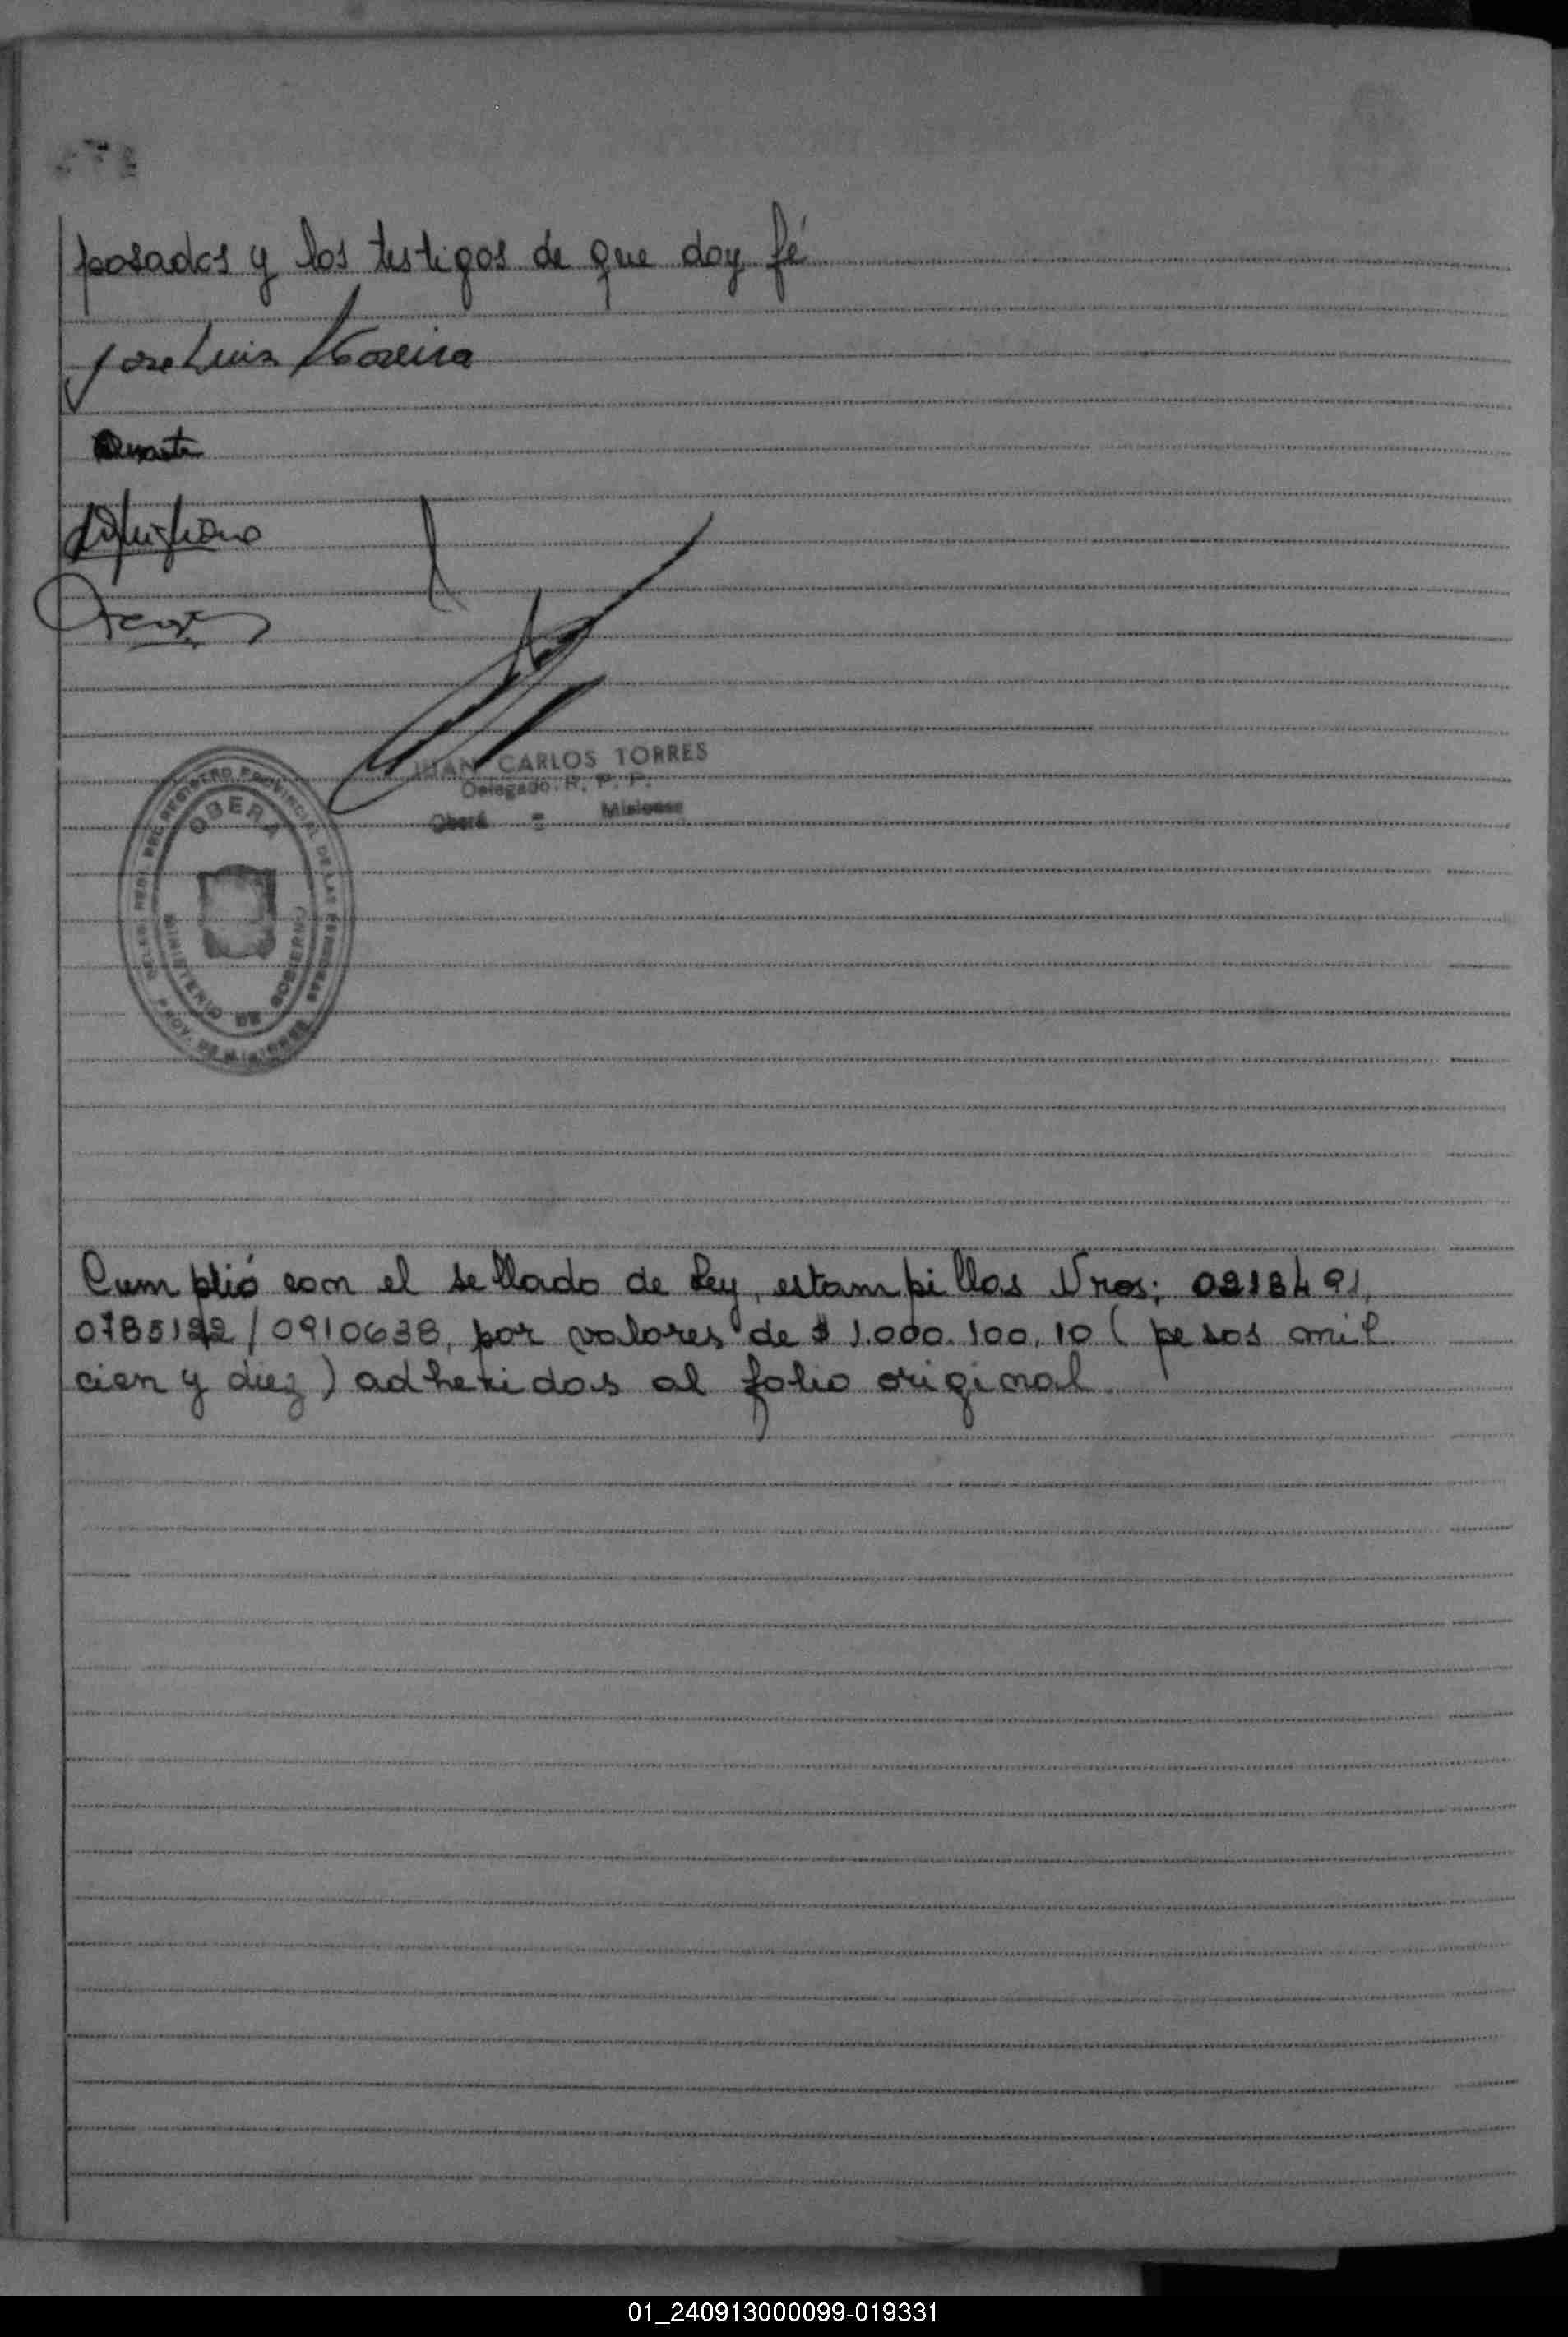 posados y los testigos de que doy fé
Jose Luis Moreira
JUAN CARLOS TORRES
Delegado R. P. P.
Oberá - Misiones
DELEG. REGI. DEL REGISTRO PROVINCIAL DE LAS PERSONAS
OBERA
MINISTERIO DE GOBIERNO
PROV. DE MISIONES
Cumplió con el sellado de Ley, estampillas Nros; 0213491,
0785122/0910638, por valores de $ 1.000.100,10 ( pesos mil
cien y diez) adheridas al folio original
01_240913000099-019331